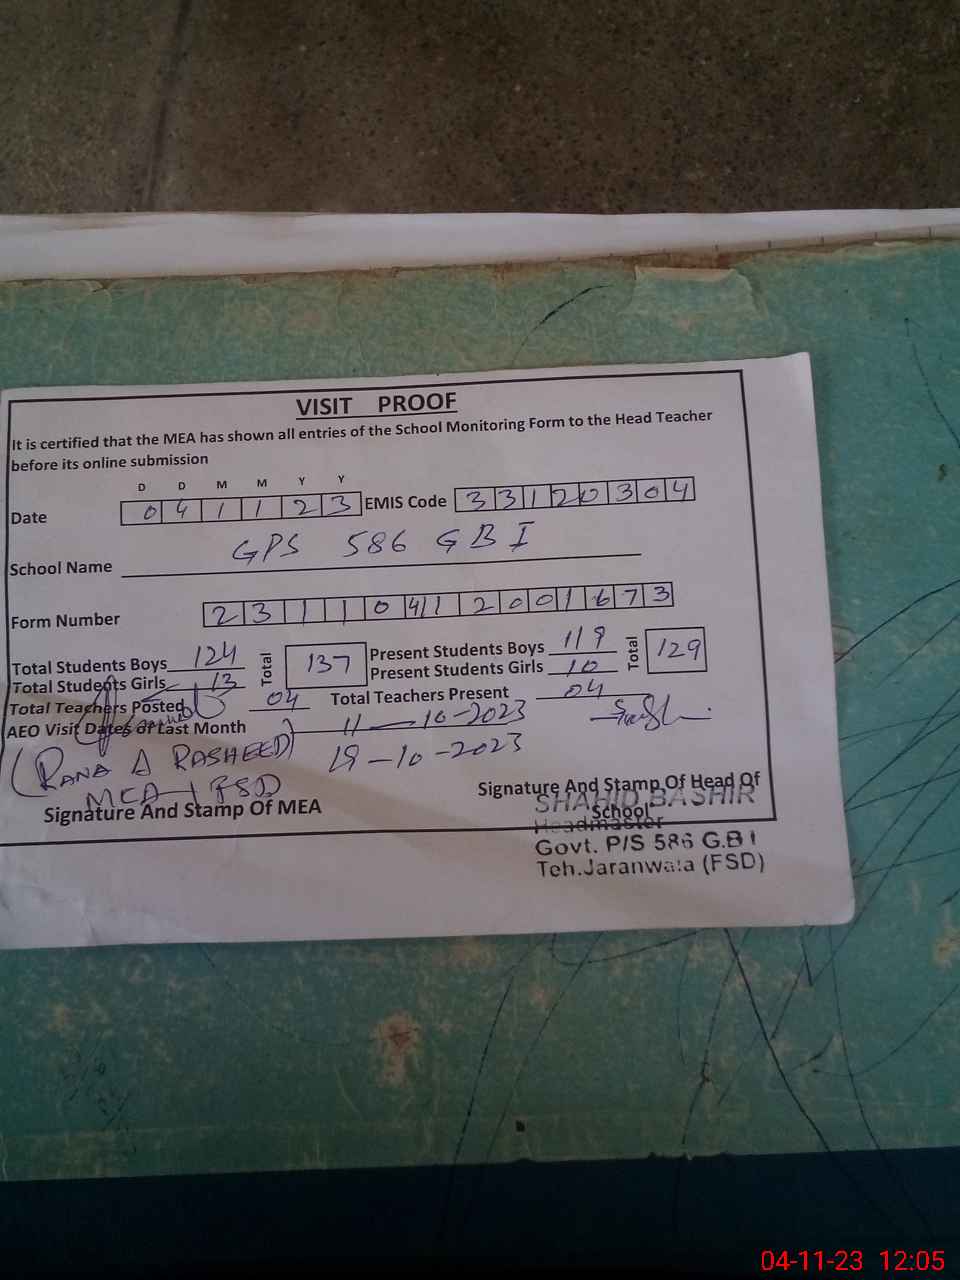 VISIT PROOF
It is certified that the MEA has shown all entries of the School Monitoring Form to the Head Teacher
before its online submission
D D M M Y Y
Date 0 4 1 1 2 3 EMIS Code 3 3 1 2 0 3 0 4
School Name GPS 586 GB I
Form Number 2 3 1 1 0 4 1 2 0 0 1 6 7 3
Total Students Boys 124 Total 137 Present Students Boys 119 Total 129
Total Students Girls 13 Present Students Girls 10
Total Teachers Posted 04 Total Teachers Present 04
AEO Visit Dates of Last Month 11-10-2023
19-10-2023
(RANA A RASHEED)
MEA-1 FSD
Signature And Stamp Of MEA
Signature And Stamp Of Head Of
School
SHAHID BASHIR
Headmaster
Govt. P/S 586 G.B I
Teh.Jaranwala (FSD)
04-11-23 12:05